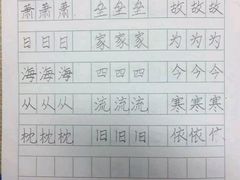 萧萧萧 垒垒垒 故故故
日日日 家家家 为为为
海海海 四四四 今今今
从从从 流流流 寒寒寒
枕枕枕 旧旧旧 依依